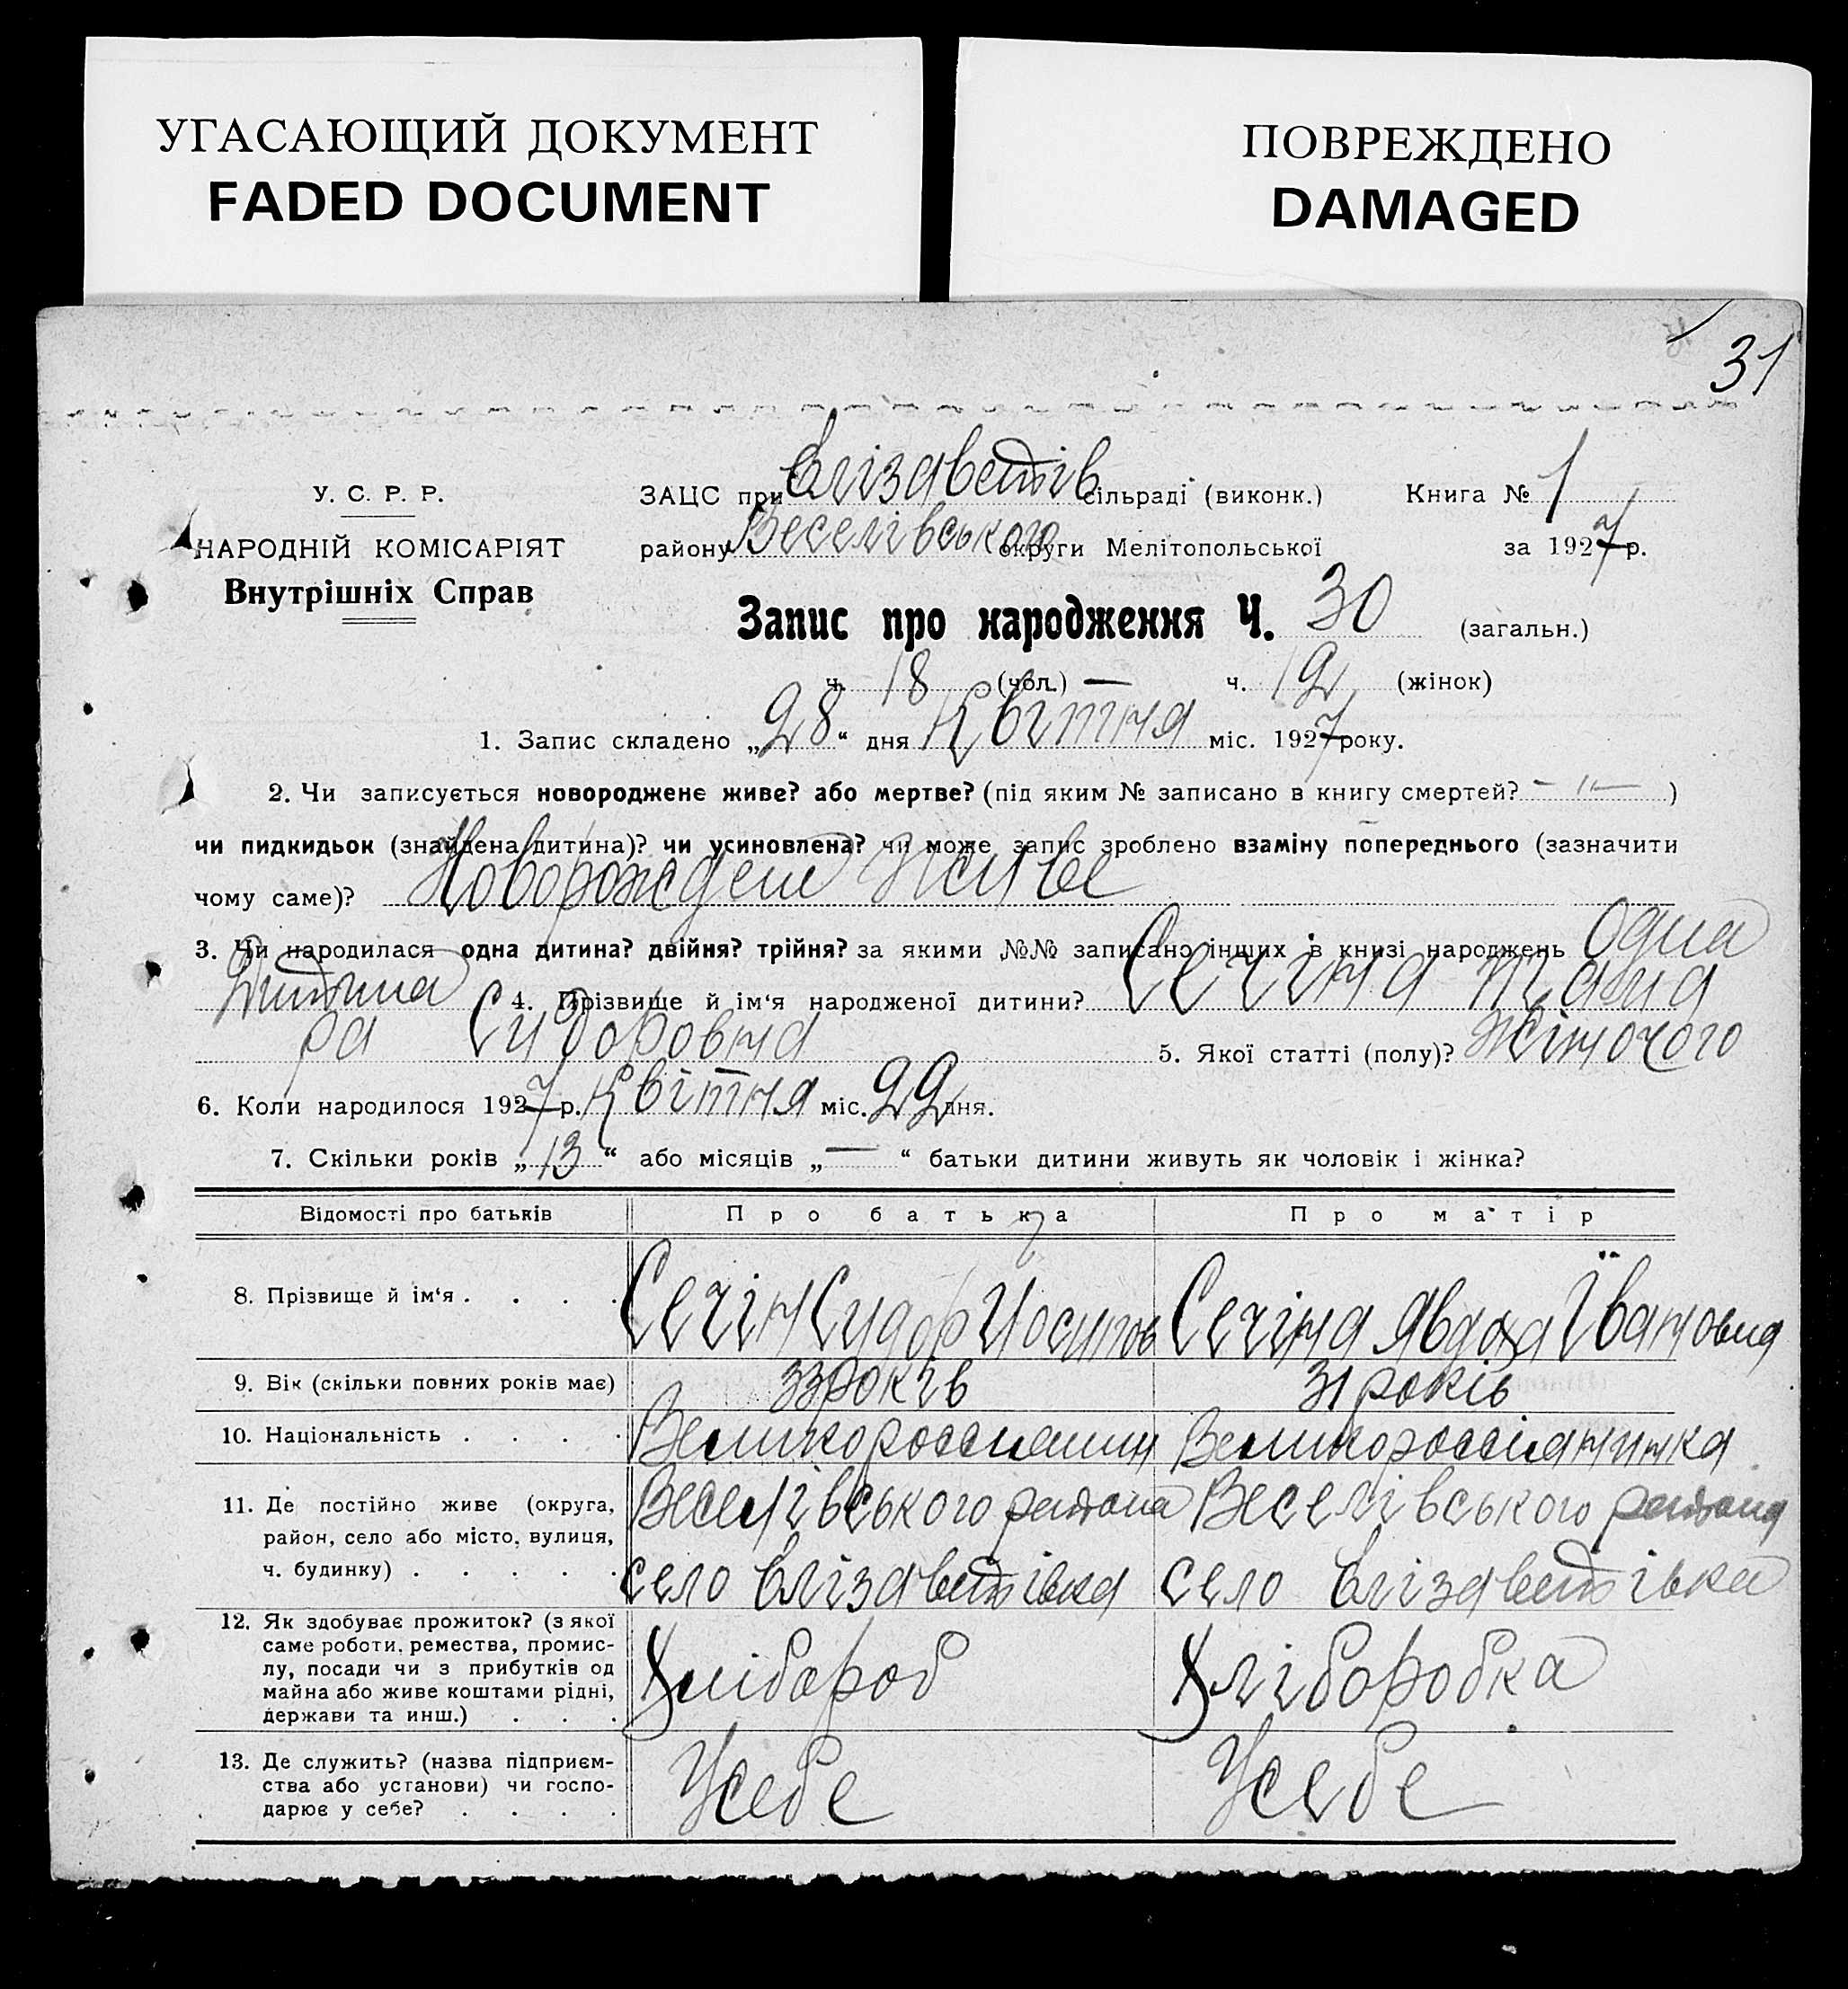 УГАСАЮЩИЙ ДОКУМЕНТ
FADED DOCUMENT
ПОВРЕЖДЕНО
DAMAGED
31
У. С. Р. Р.
НАРОДНІЙ КОМІСАРІЯТ
Внутрішніх Справ
ЗАЦС при Єлізаветів сільраді (виконк.) Книга № 1
району Веселівського округи Мелітопольської за 1927 р.
Запис про народження Ч. 30 (загальн.)
ч. 18 (чол.) — ч. 12 (жінок)
1. Запис складено „28“ дня Квітня міс. 1927 року.
2. Чи записується новороджене живе? або мертве? (під яким № записано в книгу смертей? — „ — )
чи пидкидьок (знайдена дитина)? чи усиновлена? чи може запис зроблено взаміну попереднього (зазначити
чому саме)? Новорождене живе
3. Чи народилася одна дитина? двійня? трійня? за якими №№ записано інших в книзі народжень Одна
Дитина 4. Прізвище й ім‘я народженої дитини? Сечіна Тама
ра Сидоровна 5. Якої статті (полу)? жіночого
6. Коли народилося 1927 р. Квітня міс. 22 дня.
7. Скільки років „13“ або місяців „—“ батьки дитини живуть як чоловік і жінка?
Відомості про батьків Про батька Про матір
8. Прізвище й ім‘я . . . . Сечін Сидор Иосипов Сечіна Явдоха Ївановна
9. Вік (скільки повних років має) 33 років 31 років
10. Національність . . . . Великороссианин Великороссианинка
11. Де постійно живе (округа,
район, село або місто, вулиця,
ч. будинку) . . . . .
Веселівського района
село Єлізаветівка
Веселівського района
село Єлізаветівка
12. Як здобуває прожиток? (з якої
саме роботи, ремества, промис-
лу, посади чи з прибутків од
майна або живе коштами рідні,
держави та инш.) . . .
Хлібороб
Хліборобка
13. Де служить? (назва підприєм-
ства або установи) чи госпо-
дарює у себе? . . . .
Усебе
Усебе